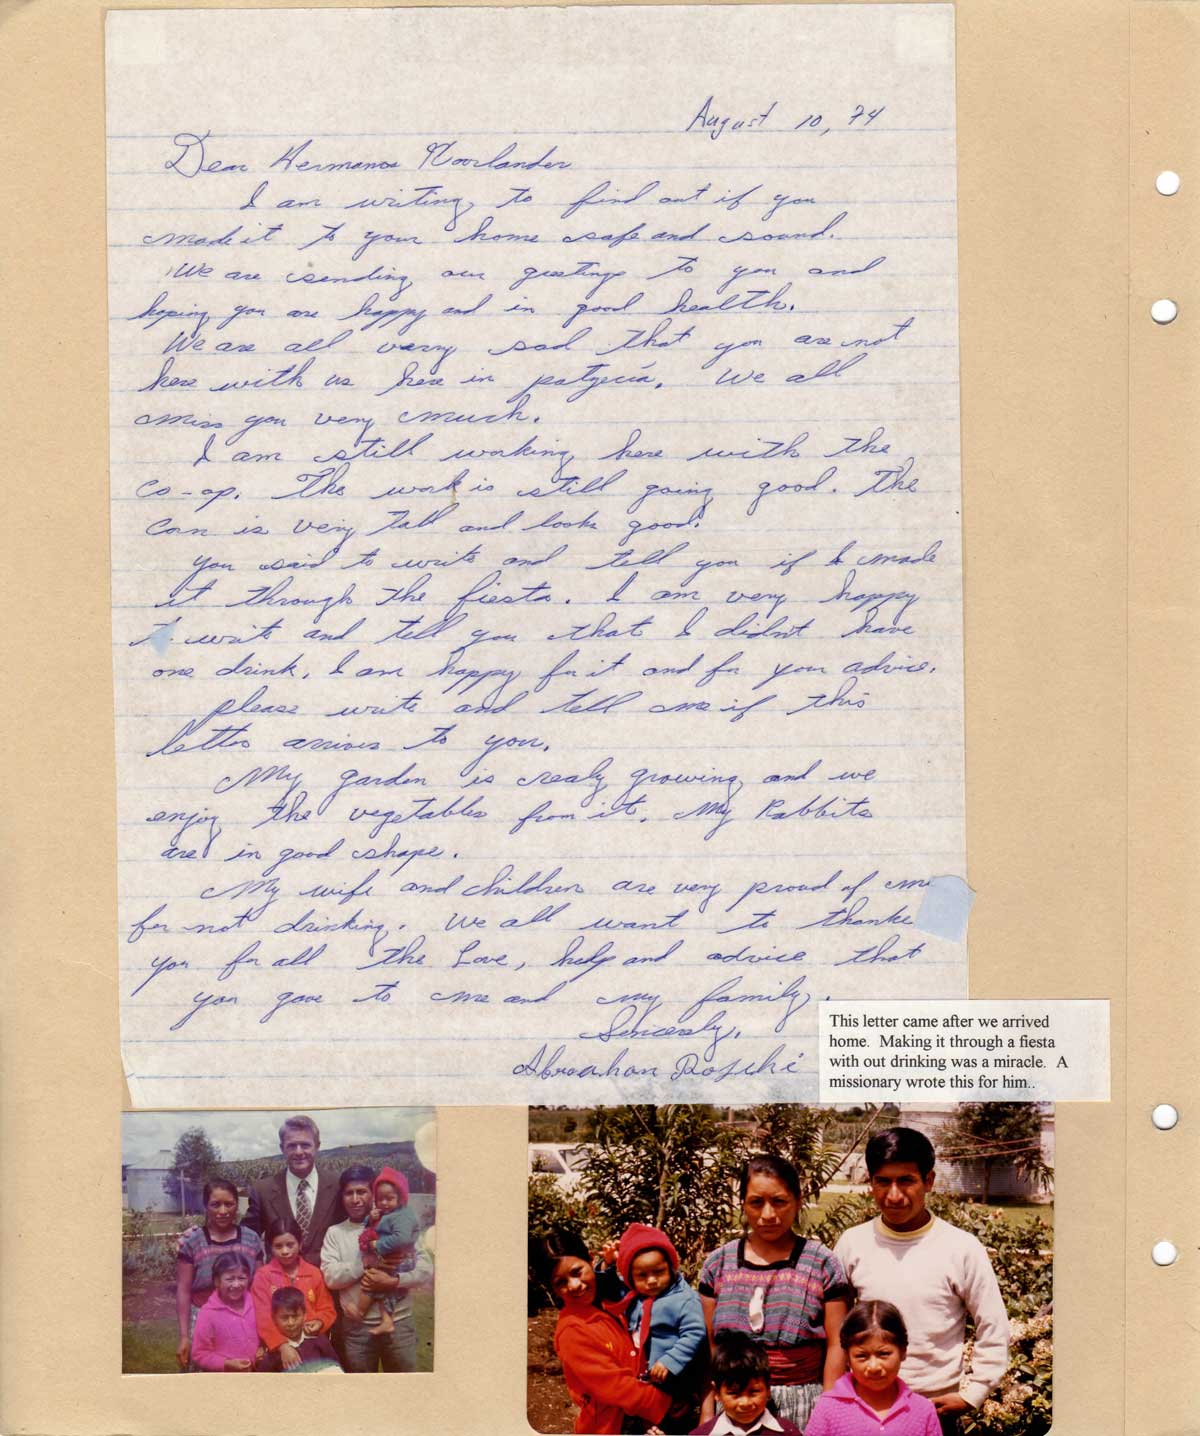 August 10, 74
Dear Hermanos Noorlander
I am writing to find out if you
made it to your home safe and sound.
We are sending our greetings to you and
hoping you are happy and in good health.
We are all verry sad that you are not
here with us here in patzicia. We all
miss you very much.
I am still working here with the
co-op. The work is still going good. The
corn is very tall and looks good.
you said to write and tell you if I made
it through the fiesta. I am very happy
to write and tell you that I didn't have
one drink. I am happy for it and for your advice.
please write and tell me if this
letter arrives to you.
My garden is realy growing and we
enjoy the vegetables from it. My Rabbits
are in good shape.
My wife and children are very proud of me
for not drinking. We all want to thanke
you for all the Love, help and advice that
you gave to me and my family.
Sincerely,
Abraahan
This letter came after we arrived
home. Making it through a fiesta
with out drinking was a miracle. A
missionary wrote this for him..